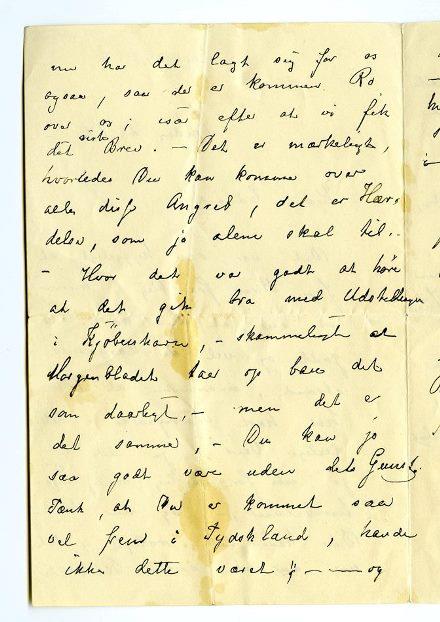 nu har det lagt sig for os
ogsaa, saa der er kommen Ro
over os; især efter at vi fik
det siste Brev. — Det er mærkeligt,
hvorledes Du kan komme over
alle disse Angreb, det er Hær-
delse, som jo alene skal til..
— Hvor det var godt at høre
at det gik bra med Udstillingen
i Kjøbenhavn, – skammeligt at
Morgenbladet taer op bare det
som daarligt, – men det er
det samme, – Du kan jo
saa godt være uden dets Gunst.
Tænk, at Du er kommet saa
vel frem i Tydskland, havde
ikke dette været — og